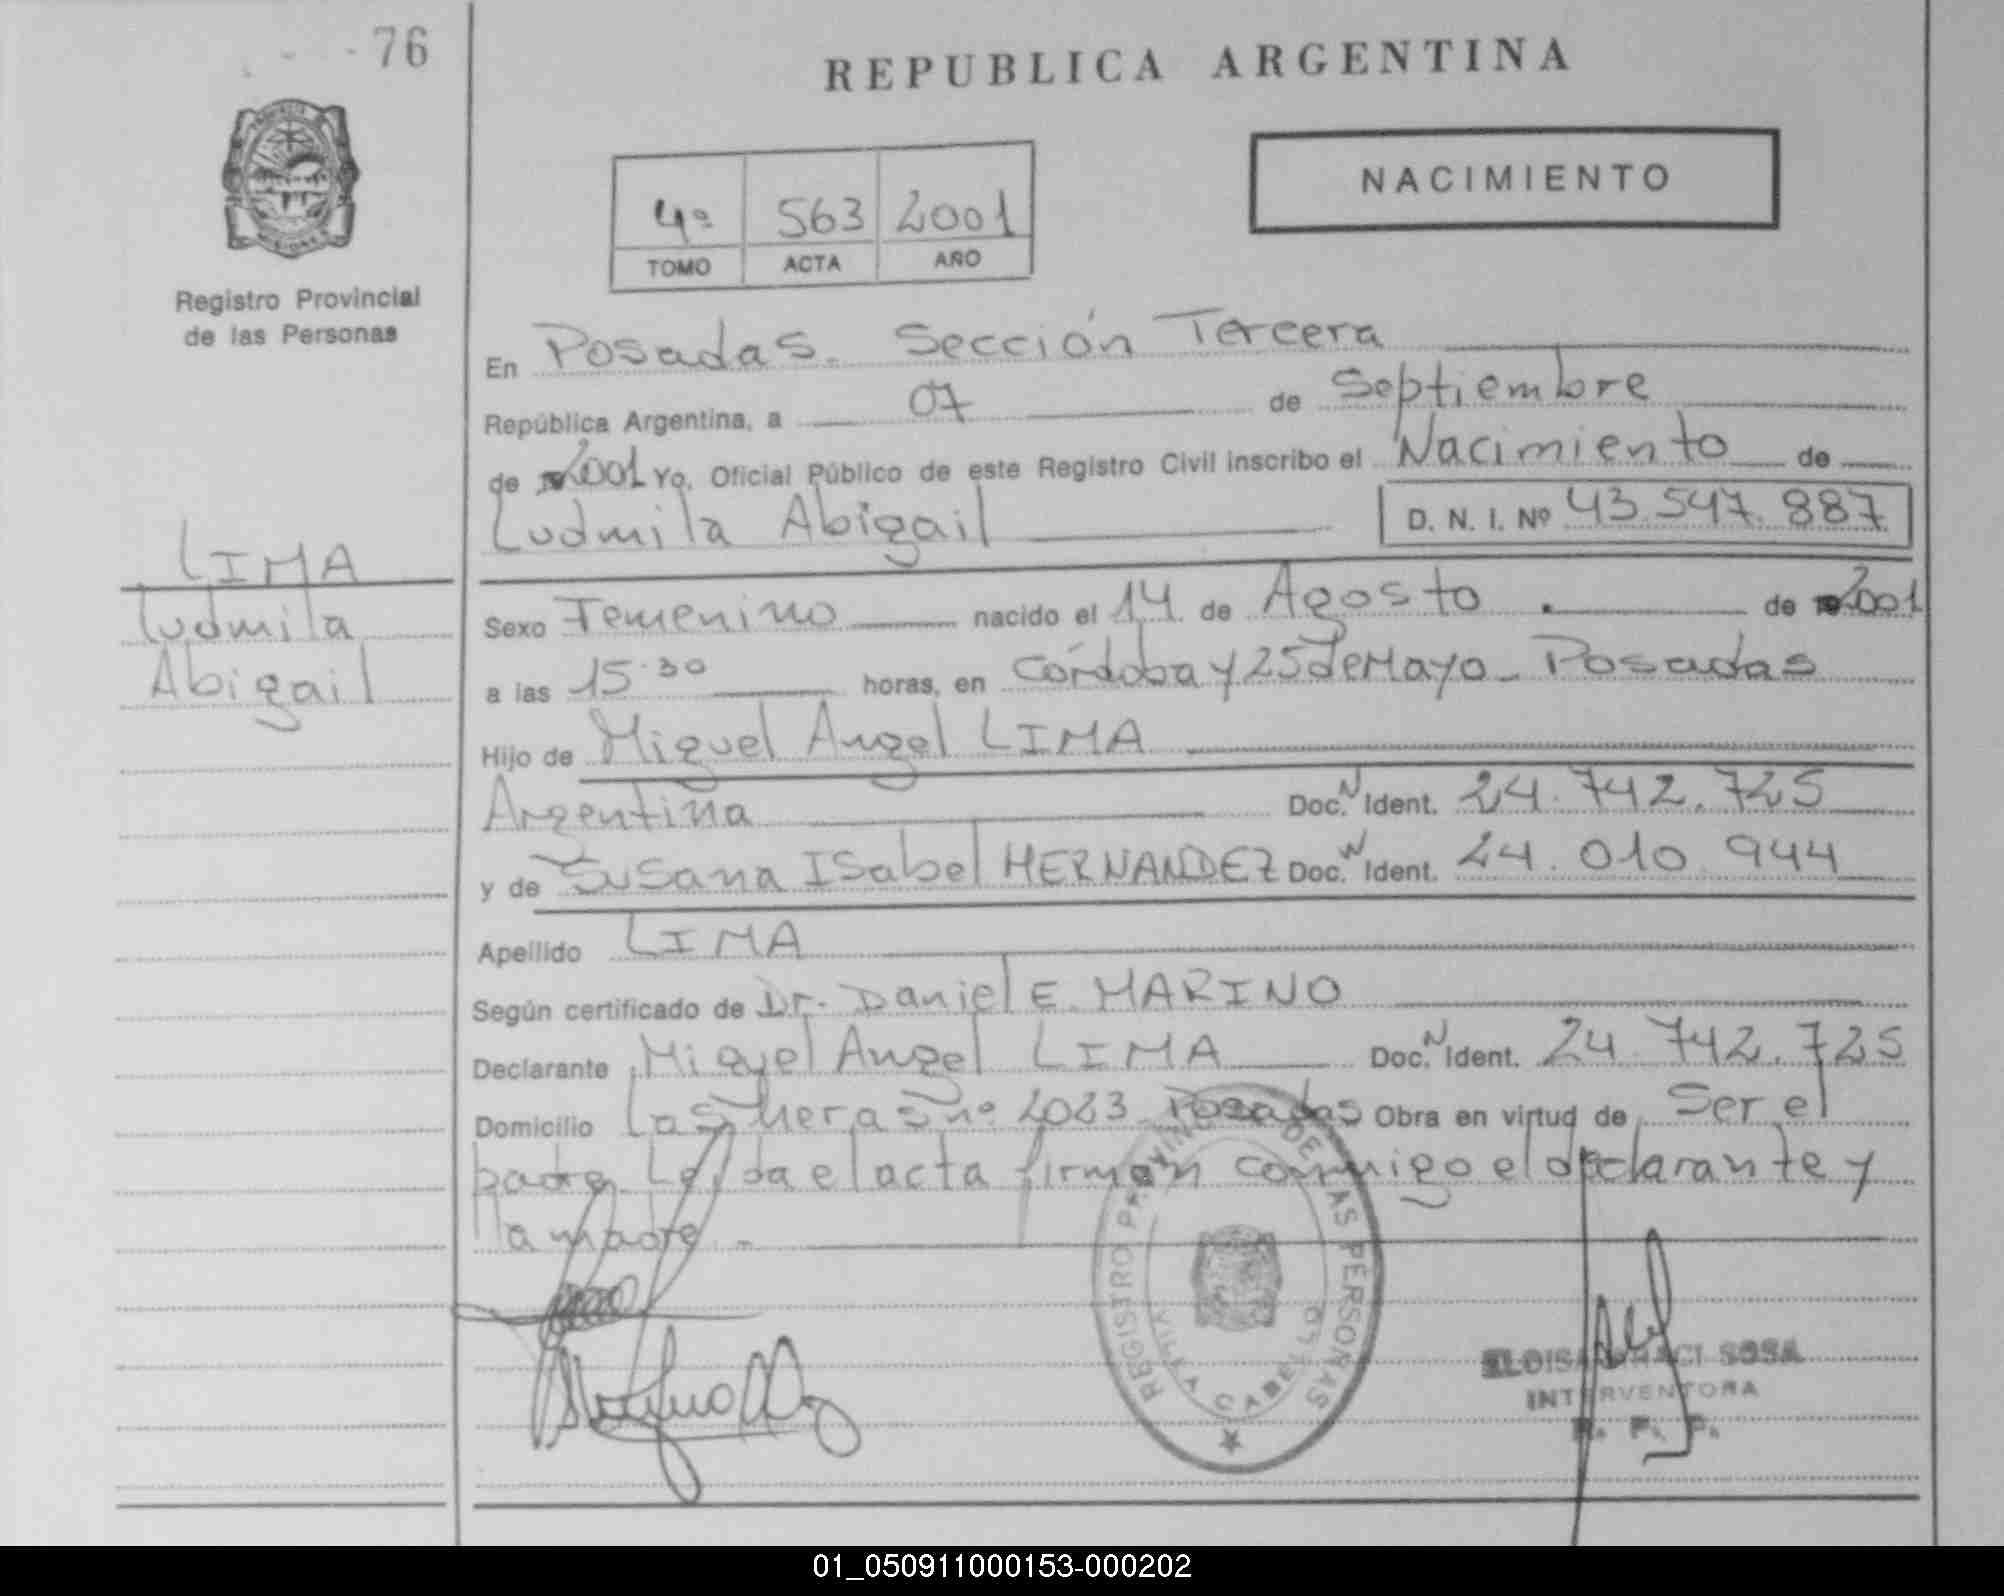 76
REPUBLICA ARGENTINA
NACIMIENTO
4º 563 2001
TOMO ACTA AÑO
Registro Provincial
de las Personas
En Posadas. Sección Tercera
República Argentina, a 07 de Septiembre
de 2001 Yo, Oficial Público de este Registro Civil inscribo el Nacimiento de
Ludmila Abigail D. N. I. Nº 43.547.887
LIMA
Ludmila
Abigail
Sexo Femenino nacido el 14 de Agosto de 2001
a las 15.30 horas, en Córdoba y 25 de Mayo - Posadas
Hijo de Miguel Angel LIMA
Argentina Doc. N Ident. 24.742.725
y de Susana Isabel HERNANDEZ Doc. N Ident. 24.010.944
Apellido LIMA
Según certificado de Dr. Daniel E. MARINO
Declarante Miguel Angel LIMA Doc. N Ident. 24.742.725
Domicilio Las Heras nº 2023 Posadas Obra en virtud de Ser el
padre. Leída el acta firman conmigo el declarante y
la madre. -
REGISTRO PROVINCIAL DE LAS PERSONAS
VILLA CABELLO
SOSA
INTERVENTORA
R. P. P.
01_050911000153-000202